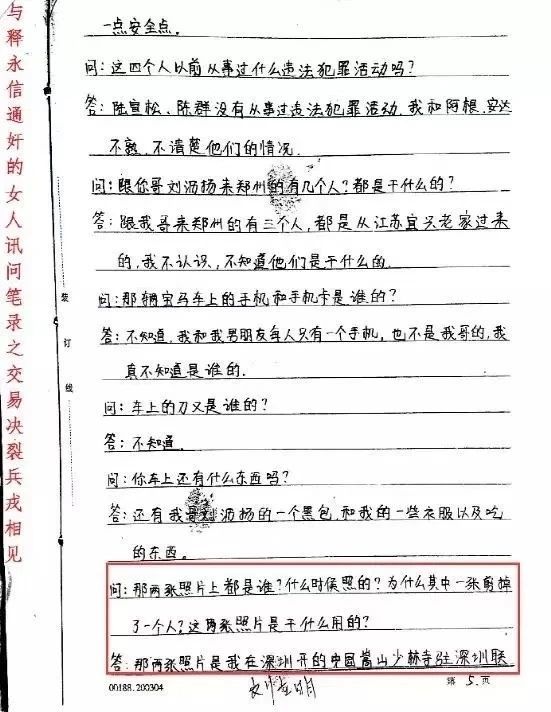 与释永信通奸的女人讯问笔录之交易决裂兵戎相见
装订线
一点安全点。
问:这四个人以前从事过什么违法犯罪活动吗?
答:陆宣松、陈群没有从事过违法犯罪活动,我和阿根、安达
不熟,不清楚他们的情况。
问:跟你哥刘沥扬来郑州的有几个人?都是干什么的?
答:跟我哥来郑州的有三个人,都是从江苏宜兴老家过来
的,我不认识,不知道他们是干什么的。
问:那辆宝马车上的手机和手机卡是谁的?
答:不知道,我和我男朋友每人只有一个手机,也不是我哥的,我
真不知道是谁的。
问:车上的刀又是谁的?
答:不知道。
问:你车上还有什么东西吗?
答:还有我哥刘沥扬的一个黑包,和我的一些衣服以及吃
的东西。
问:那两张照片上都是谁?什么时候照的?为什么其中一张剪掉
了一个人?这两张照片是干什么用的?
答:那两张照片是我在深圳开的中国嵩山少林寺驻深圳联
00188.200304
第5页